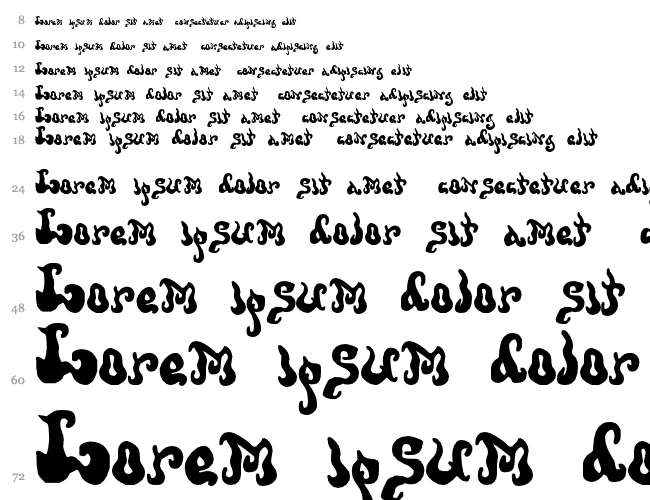 8 Lorem ipsum dolor sit amet consectetuer adipiscing elit
10 Lorem ipsum dolor sit amet consectetuer adipiscing elit
12 Lorem ipsum dolor sit amet consectetuer adipiscing elit
14 Lorem ipsum dolor sit amet consectetuer adipiscing elit
16 Lorem ipsum dolor sit amet consectetuer adipiscing elit
18 Lorem ipsum dolor sit amet consectetuer adipiscing elit
24 Lorem ipsum dolor sit amet consectetuer adip
36 Lorem ipsum dolor sit amet c
48 Lorem ipsum dolor sit
60 Lorem ipsum dolor
72 Lorem ipsum do